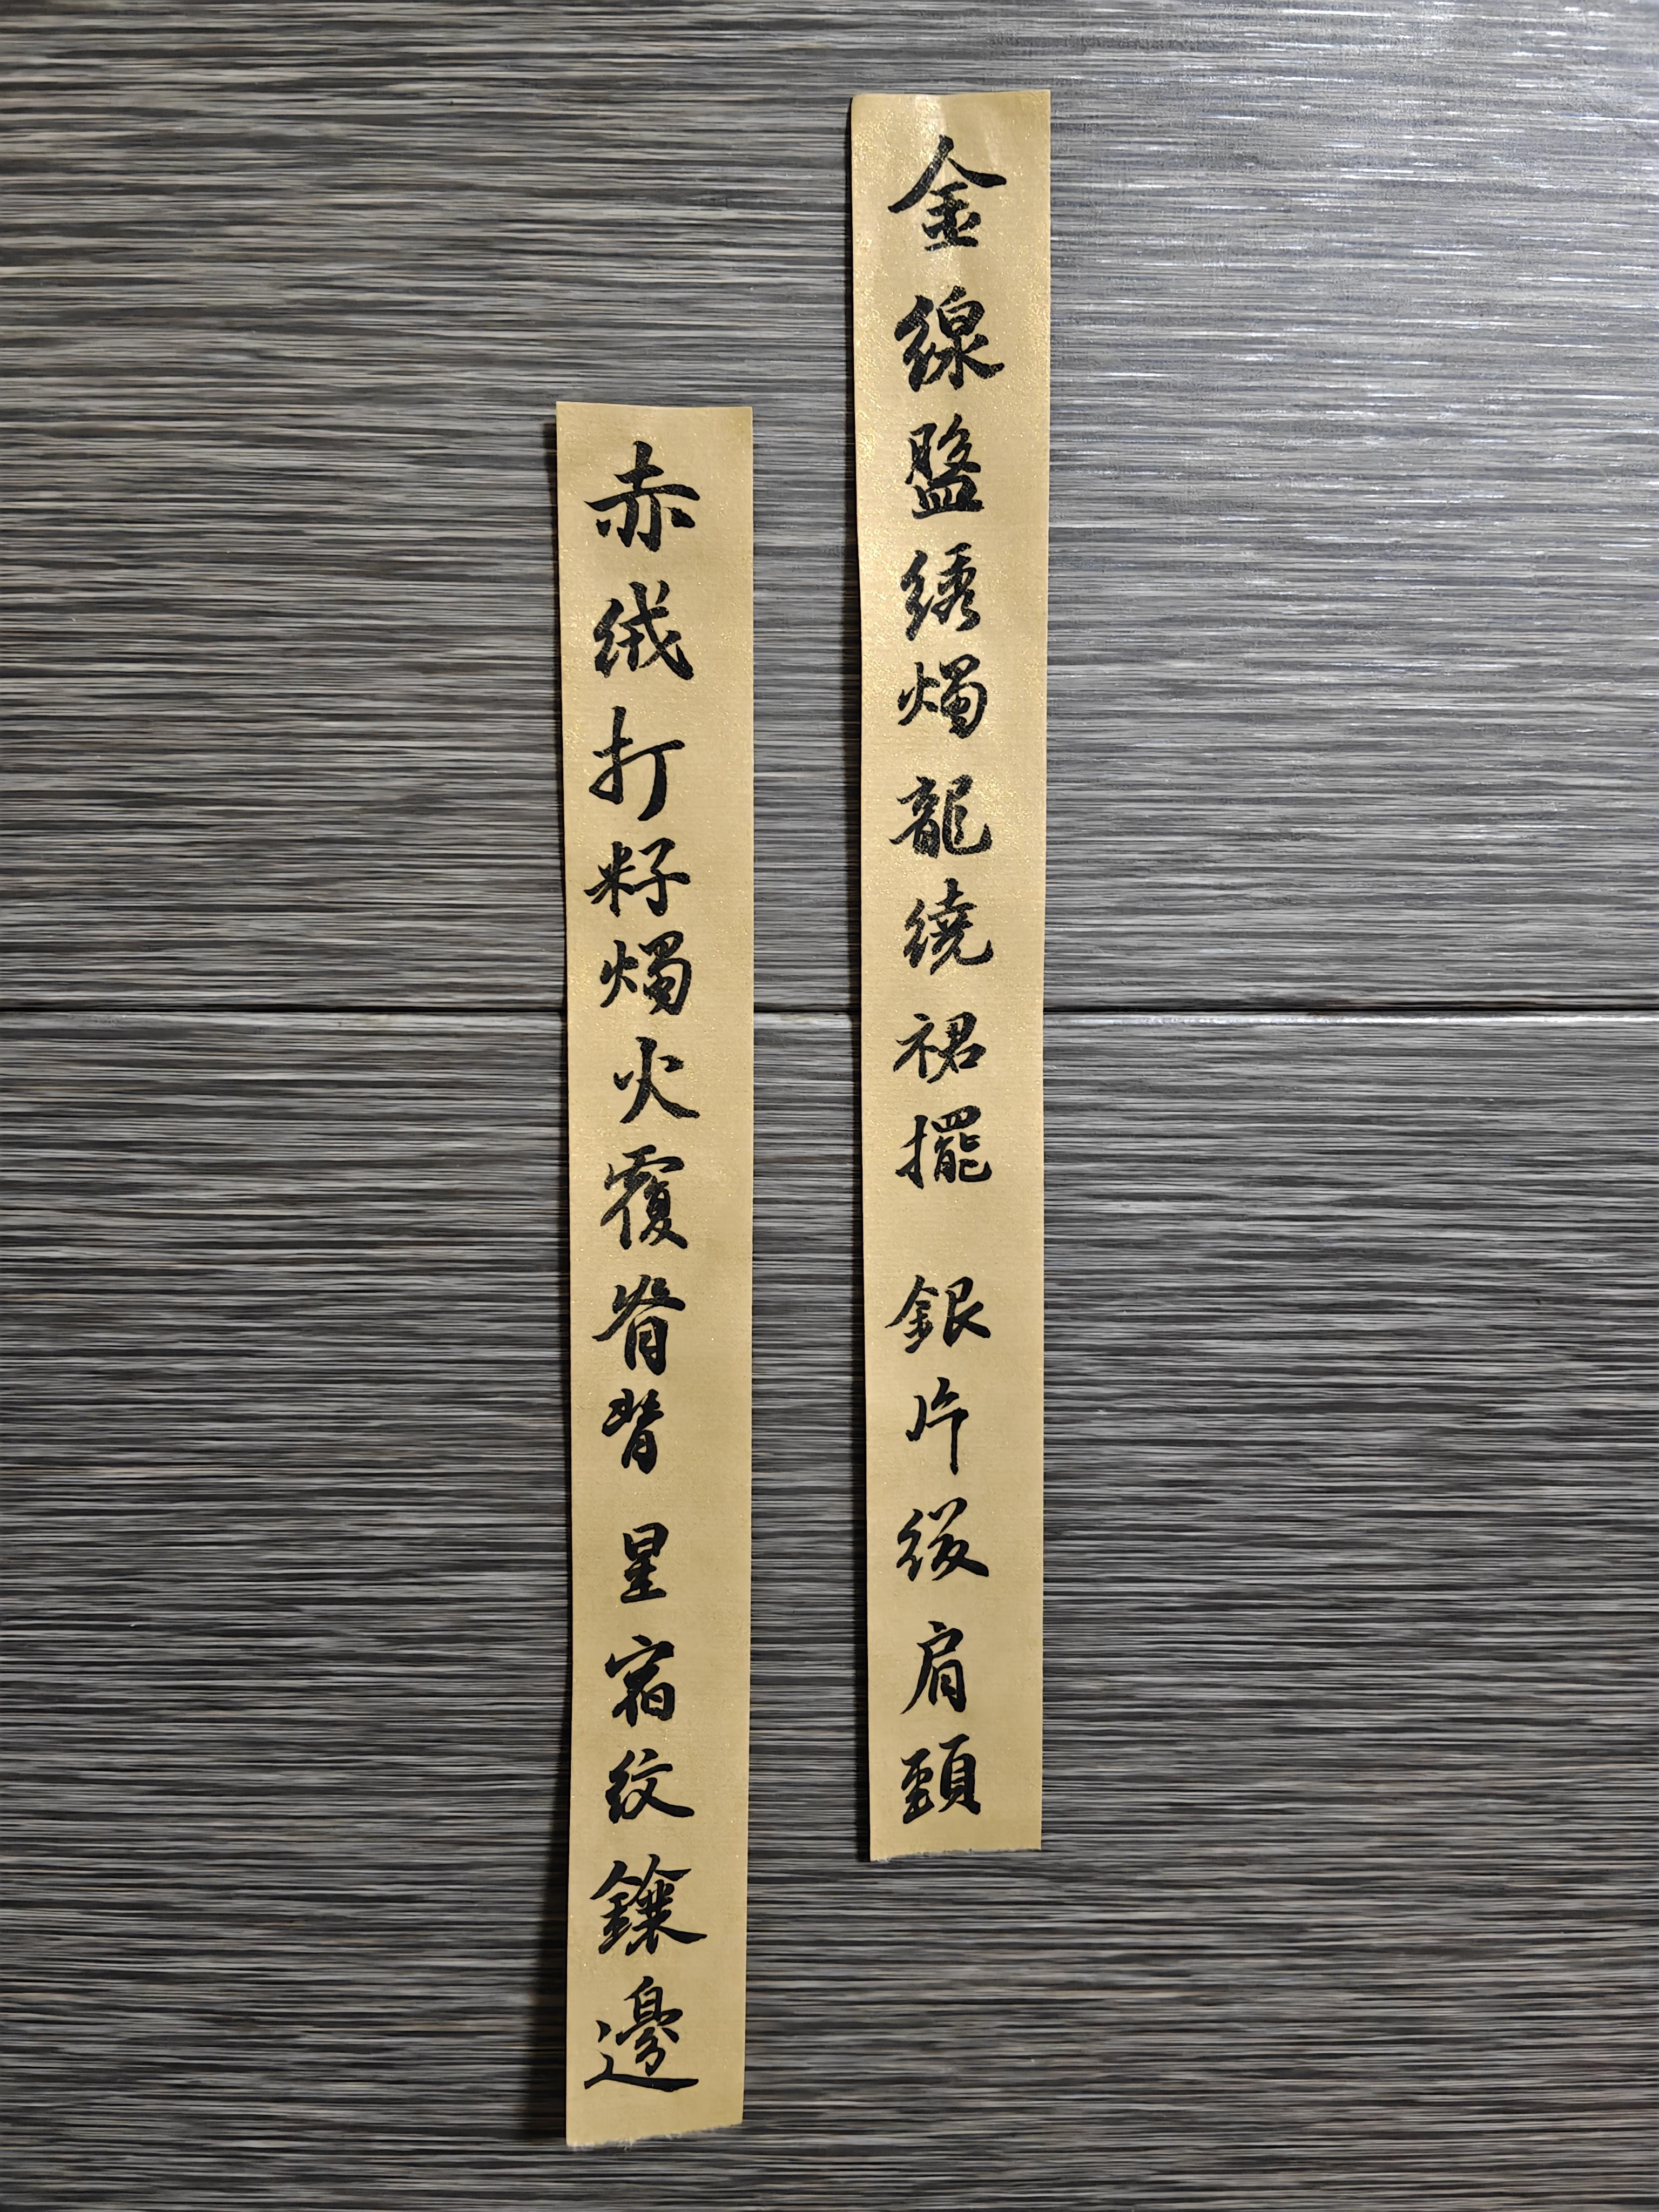 金線盤绣燭龍繞裙擺 銀片缀肩頸
赤绒打籽燭火覆脊背 星宿紋鑲邊